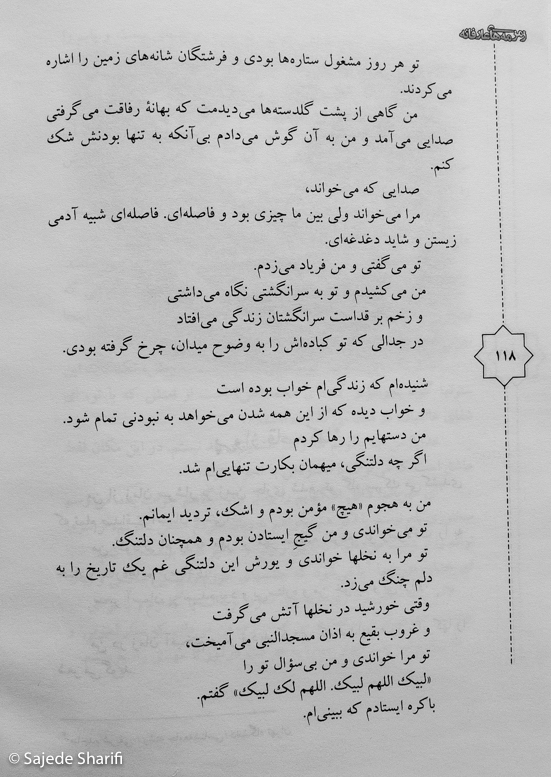 زمزمه‌های عارفانه
تو هر روز مشغول ستاره‌ها بودی و فرشتگان شانه‌های زمین را اشاره
می‌کردند.
من گاهی از پشت گلدسته‌ها می‌دیدمت که بهانهٔ رفاقت می‌گرفتی
صدایی می‌آمد و من به آن گوش می‌دادم بی‌آنکه به تنها بودنش شک
کنم.
صدایی که می‌خواند،
مرا می‌خواند ولی بین ما چیزی بود و فاصله‌ای. فاصله‌ای شبیه آدمی
زیستن و شاید دغدغه‌ای.
تو می‌گفتی و من فریاد می‌زدم.
من می‌کشیدم و تو به سرانگشتی نگاه می‌داشتی
و زخم بر قداست سرانگشتان زندگی می‌افتاد
در جدالی که تو کباده‌اش را به وضوح میدان، چرخ گرفته بودی.
۱۱۸
شنیده‌ام که زندگی‌ام خواب بوده است
و خواب دیده که از این همه شدن می‌خواهد به نبودنی تمام شود.
من دستهایم را رها کردم
اگر چه دلتنگی، میهمان بکارت تنهایی‌ام شد.
من به هجوم «هیچ» مؤمن بودم و اشک، تردید ایمانم.
تو می‌خواندی و من گیجِ ایستادن بودم و همچنان دلتنگ.
تو مرا به نخلها خواندی و یورش این دلتنگی غم یک تاریخ را به
دلم چنگ می‌زد.
وقتی خورشید در نخلها آتش می‌گرفت
و غروب بقیع به اذان مسجدالنبی می‌آمیخت،
تو مرا خواندی و من بی‌سؤال تو را
«لبیک اللهم لبیک. اللهم لک لبیک» گفتم.
باکره ایستادم که ببینی‌ام.
© Sajede Sharifi